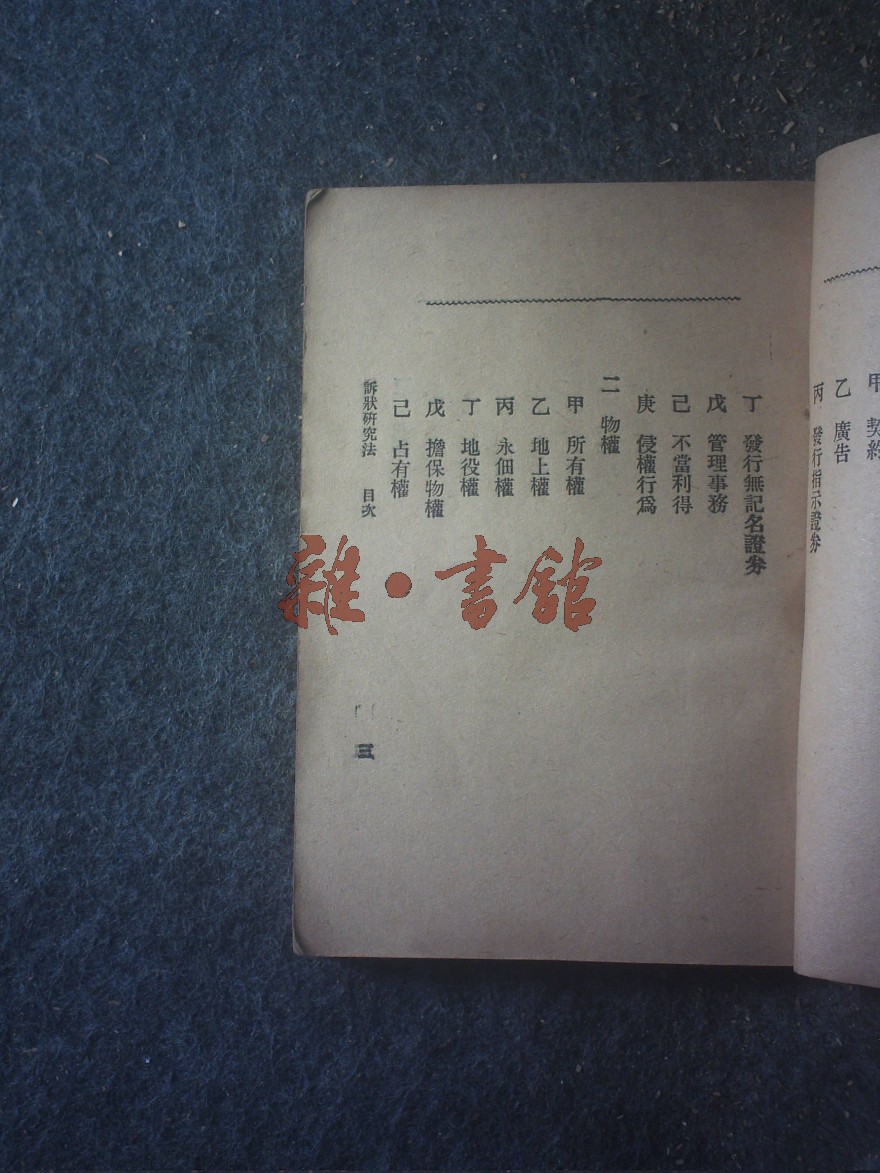 甲　契約
乙　廣告
丙　發行指示證券
丁　發行無記名證券
戊　管理事務
己　不當利得
庚　侵權行爲
二　物權
甲　所有權
乙　地上權
丙　永佃權
丁　地役權
戊　擔保物權
己　占有權
訴狀研究法　目次
三
雜·書館